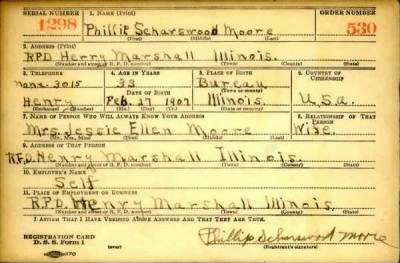 SERIAL NUMBER 1. NAME (Print) ORDER NUMBER
1298 Phillip Scharswood Moore 530
(First) (Middle) (Last)
2. ADDRESS (Print)
R.P.D. Henry Marshall Illinois.
(Number and street or R. F. D. number) (Town) (County) (State)
3. TELEPHONE 4. AGE IN YEARS 5. PLACE OF BIRTH 6. COUNTRY OF CITIZENSHIP
none. 3015 33 Bureau
(Town or county)
DATE OF BIRTH
Henry Feb. 27 1907 Illinois. U.S.a.
(Exchange) (Number) (Mo.) (Day) (Yr.) (State or country)
7. NAME OF PERSON WHO WILL ALWAYS KNOW YOUR ADDRESS 8. RELATIONSHIP OF THAT PERSON
Mrs. Jessie Ellen Moore Wife.
(Mr., Mrs., Miss) (First) (Middle) (Last)
9. ADDRESS OF THAT PERSON
R.F.D. Henry Marshall Illinois.
(Number and street or R. F. D. number) (Town) (County) (State)
10. EMPLOYER'S NAME
Self
11. PLACE OF EMPLOYMENT OR BUSINESS
R.P.D. Henry Marshall Illinois.
(Number and street or R. F. D. number) (Town) (County) (State)
I AFFIRM THAT I HAVE VERIFIED ABOVE ANSWERS AND THAT THEY ARE TRUE.
REGISTRATION CARD
D. S. S. Form 1 (over) Phillip Scharswood Moore
(Registrant's signature)